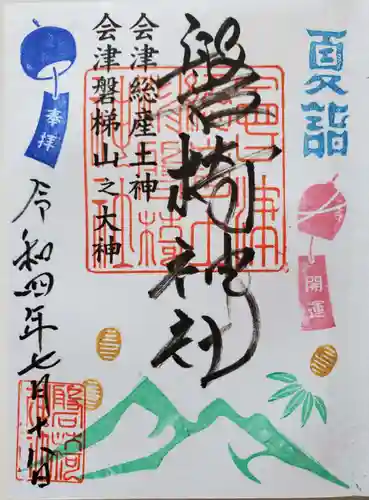 夏詣
磐椅神社
会津総産土神
会津磐梯山之大神
奉拝
開運
令和四年七月十八日